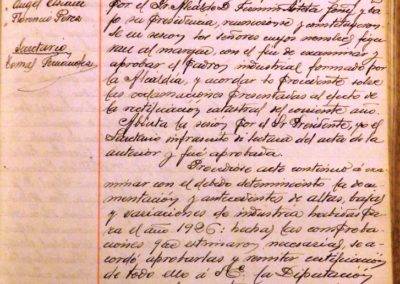 Angel
Florencio Perez
Secretario,
Angel
por el Sr Alcalde D. Fermin
jo su Presidencia,
se en sesion, los señores cuyos nombres figu-
ran al margen, con el fin de examinar y
aprobar el Padrón industrial formado por
la Alcaldía, y acordar lo procedente sobre
las presentadas al efecto de
la rectificación catastral del corriente año.
Abierta la sesion por el Sr Presidente, yo el
Secretario infrascrito di lectura del acta de la
anterior y fué aprobada.
Procedióse acto continuo á exa-
minar con el debido detenimiento la do-
cumentación y antecedentes de altas, bajas
y variaciones de industria habidas pa-
ra el año 1926: hechas las comproba-
ciones que estimaron necesarias, se a-
cordó aprobarlas y remitir certificación
de todo ello á la Diputación